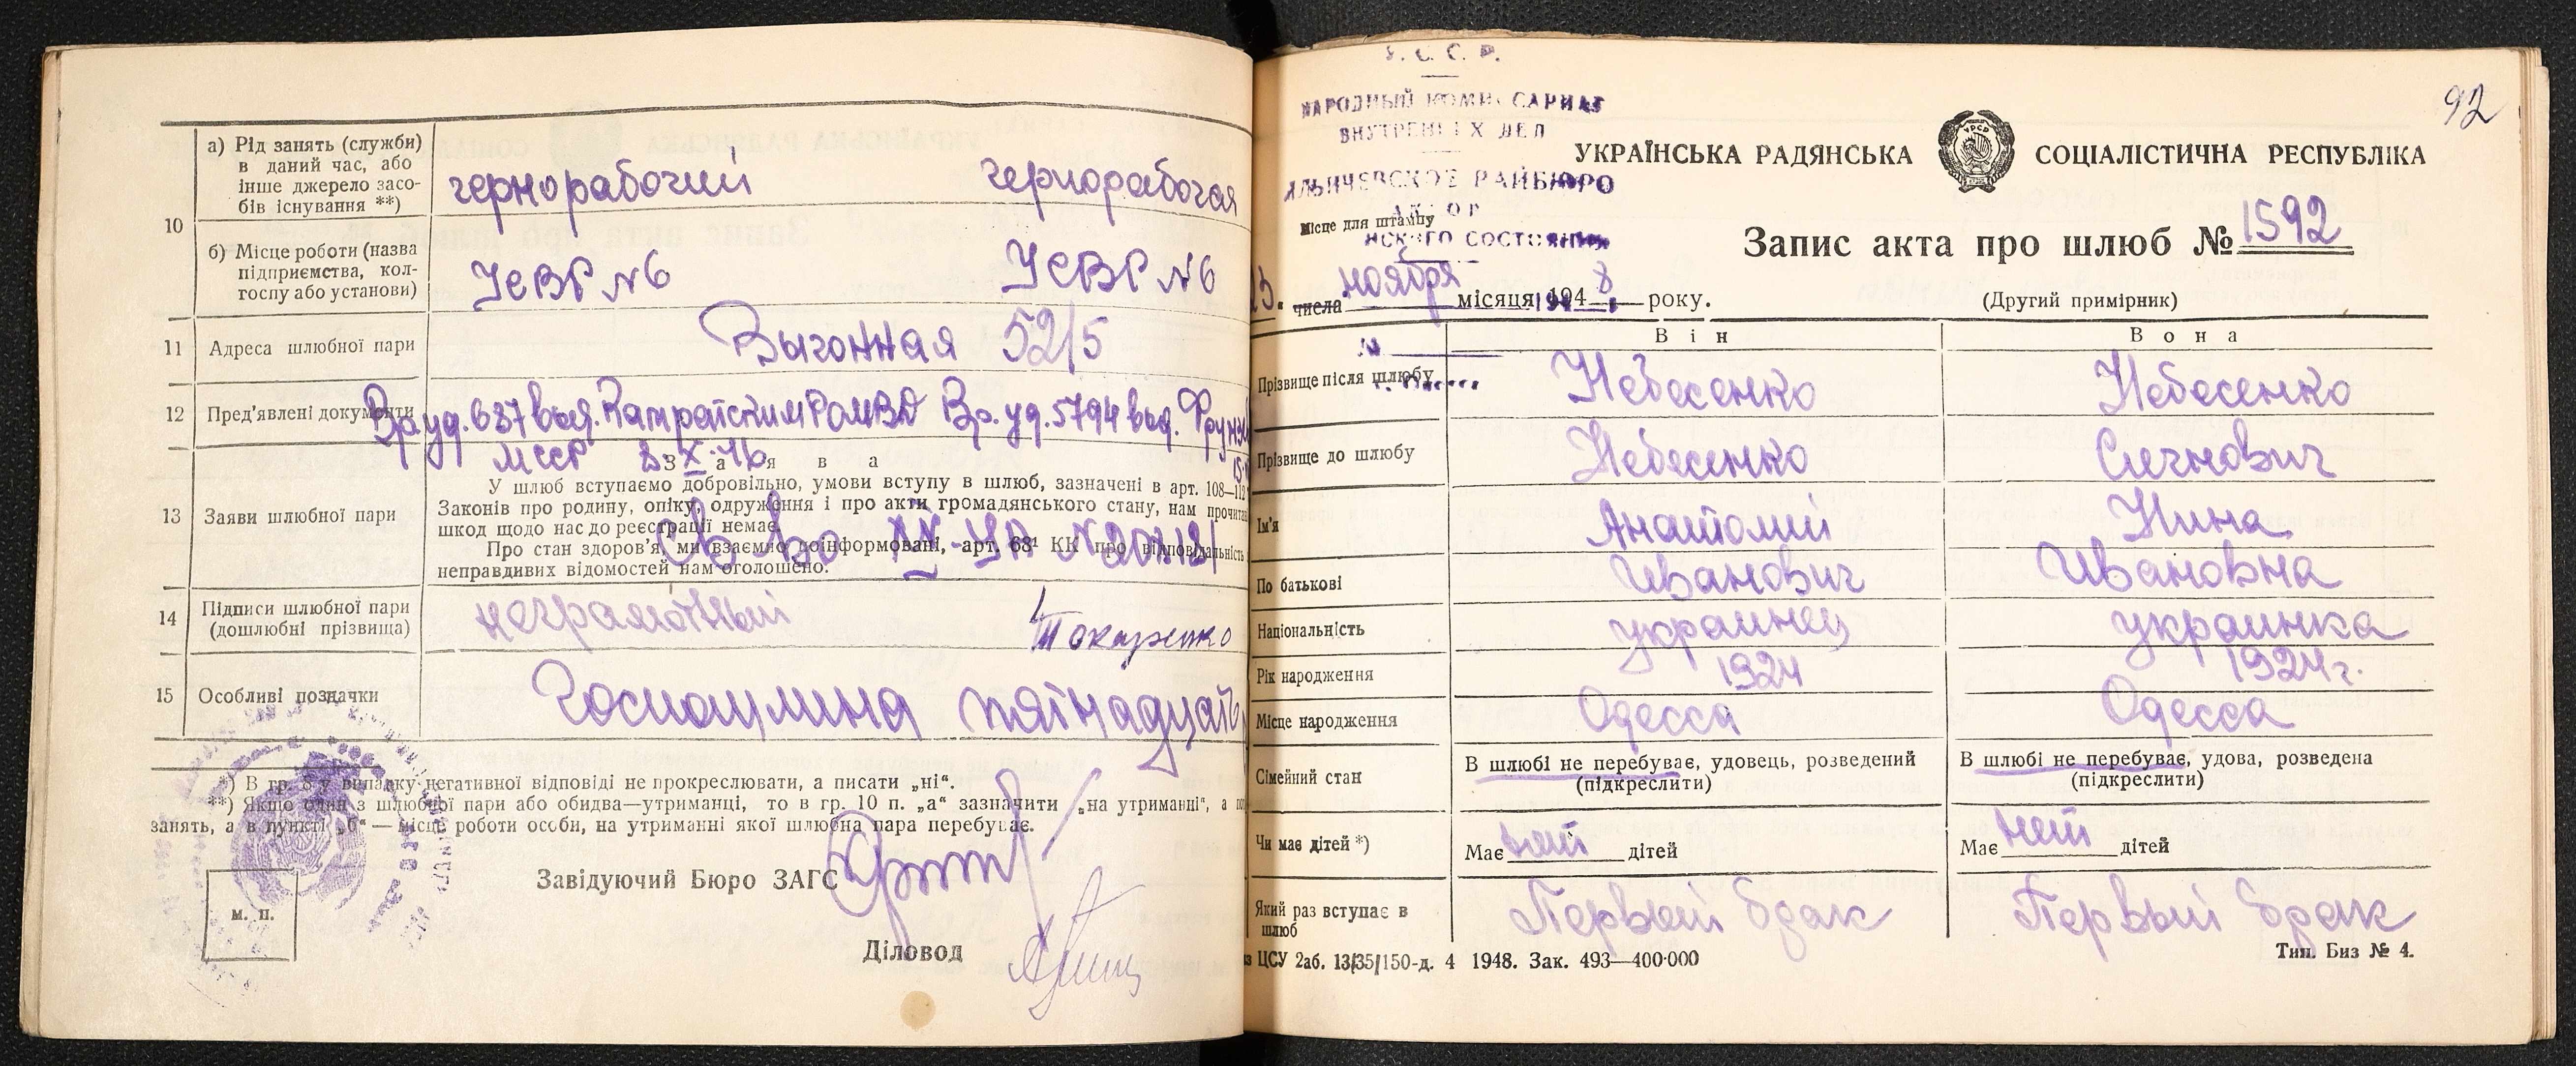 а) Рід занять (служби)
в даний час, або
інше джерело засо-
бів існування **)
чернорабочий
чернорабочая
10
б) Місце роботи (назва
підприємства, кол-
госпу або установи)
УСВР №6
УСВР №6
11
Адреса шлюбної пари
Выгонная 52/5
12
Пред'явлені документи
Вр. уд. 637 выд.
РОМВД Вр. уд. 5794 выд.
МССР
13
Заяви шлюбної пари
З а я в а
У шлюб вступаємо добровільно, умови вступу в шлюб, зазначені в арт. 108—112
Законів про родину, опіку, одруження і про акти громадянського стану, нам прочита
шкод щодо нас до реєстрації немає.
Про стан здоров'я, ми взаємно поінформовані, арт. 68¹ КК про відповідальність
неправдивих відомостей нам оголошено.
14
Підписи шлюбної пари
(дошлюбні прізвища)
неграмотный
Токаренко
15
Особливі позначки
Госпошлина пятнадцать
*) В гр. 8 у випадку негативної відповіді не прокреслювати, а писати „ні“.
**) Якщо один з шлюбної пари або обидва—утриманці, то в гр. 10 п. „а“ зазначити „на утриманці“, а
занять, а в пункті „б“ — місце роботи особи, на утриманні якої шлюбна пара перебуває.
Завідуючий Бюро ЗАГС
м. п.
Діловод
92
У. С. С. Р.
НАРОДНЫЙ КОМИССАРИАТ
ВНУТРЕННИХ ДЕЛ
ИЛЬИЧЕВСКОЕ РАЙБЮРО
Місце для штампу
СОСТОЯНИЯ
УКРАЇНСЬКА РАДЯНСЬКА СОЦІАЛІСТИЧНА РЕСПУБЛІКА
УРСР
Запис акта про шлюб № 1592
числа ноября місяця 194 8 року.
(Другий примірник)
Він
Вона
Прізвище після шлюбу
Небесенко
Небесенко
Прізвище до шлюбу
Небесенко
Сичнович
Ім'я
Анатолий
Нина
По батькові
Иванович
Ивановна
Національність
украинец
украинка
Рік народження
1924
1924 г.
Місце народження
Одесса
Одесса
Сімейний стан
В шлюбі не перебуває, удовець, розведений
(підкреслити)
В шлюбі не перебуває, удова, розведена
(підкреслити)
Чи має дітей *)
Має нет дітей
Має нет дітей
Який раз вступає в
шлюб
Первый брак
Первый брак
ЦСУ 2аб. 13/35/150-д. 4 1948. Зак. 493—400·000
Тип. Биз № 4.